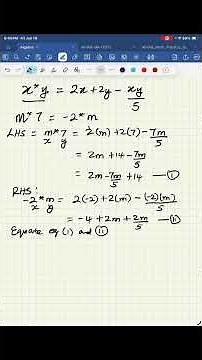 x*y = 2x+2y - xy/5
m*7 = -2*m
LHS = m*7 = 2(m) + 2(7) - 7m/5
x y
= 2m + 14 - 7m/5
= 2m - 7m/5 + 14 — (i)
RHS:
-2*m = 2(-2) + 2(m) - (-2)(m)/5
x y
= -4 + 2m + 2m/5 — (ii)
Equate eq (i) and (ii)